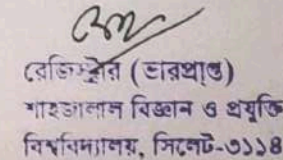 রেজিস্ট্রার (ভারপ্রাপ্ত)
শাহজালাল বিজ্ঞান ও প্রযুক্তি
বিশ্ববিদ্যালয়, সিলেট-৩১১৪